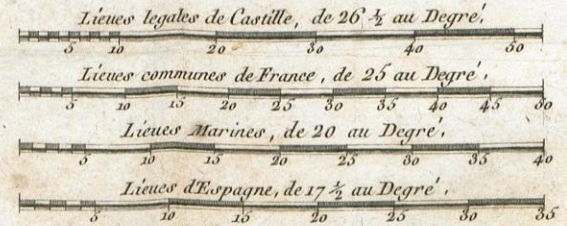 Lieues legales de Castille, de 26 ½ au Degré.
5 10 20 30 40 50
Lieues communes de France, de 25 au Degré.
5 10 15 20 25 30 35 40 45 50
Lieues Marines, de 20 au Degré.
5 10 15 20 25 30 35 40
Lieues d'Espagne, de 17 ½ au Degré.
5 10 15 20 25 30 35